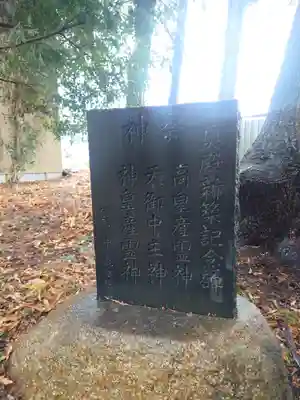 奥殿新築記念碑
祭神
高皇産霊神
天御中主神
神皇産霊神